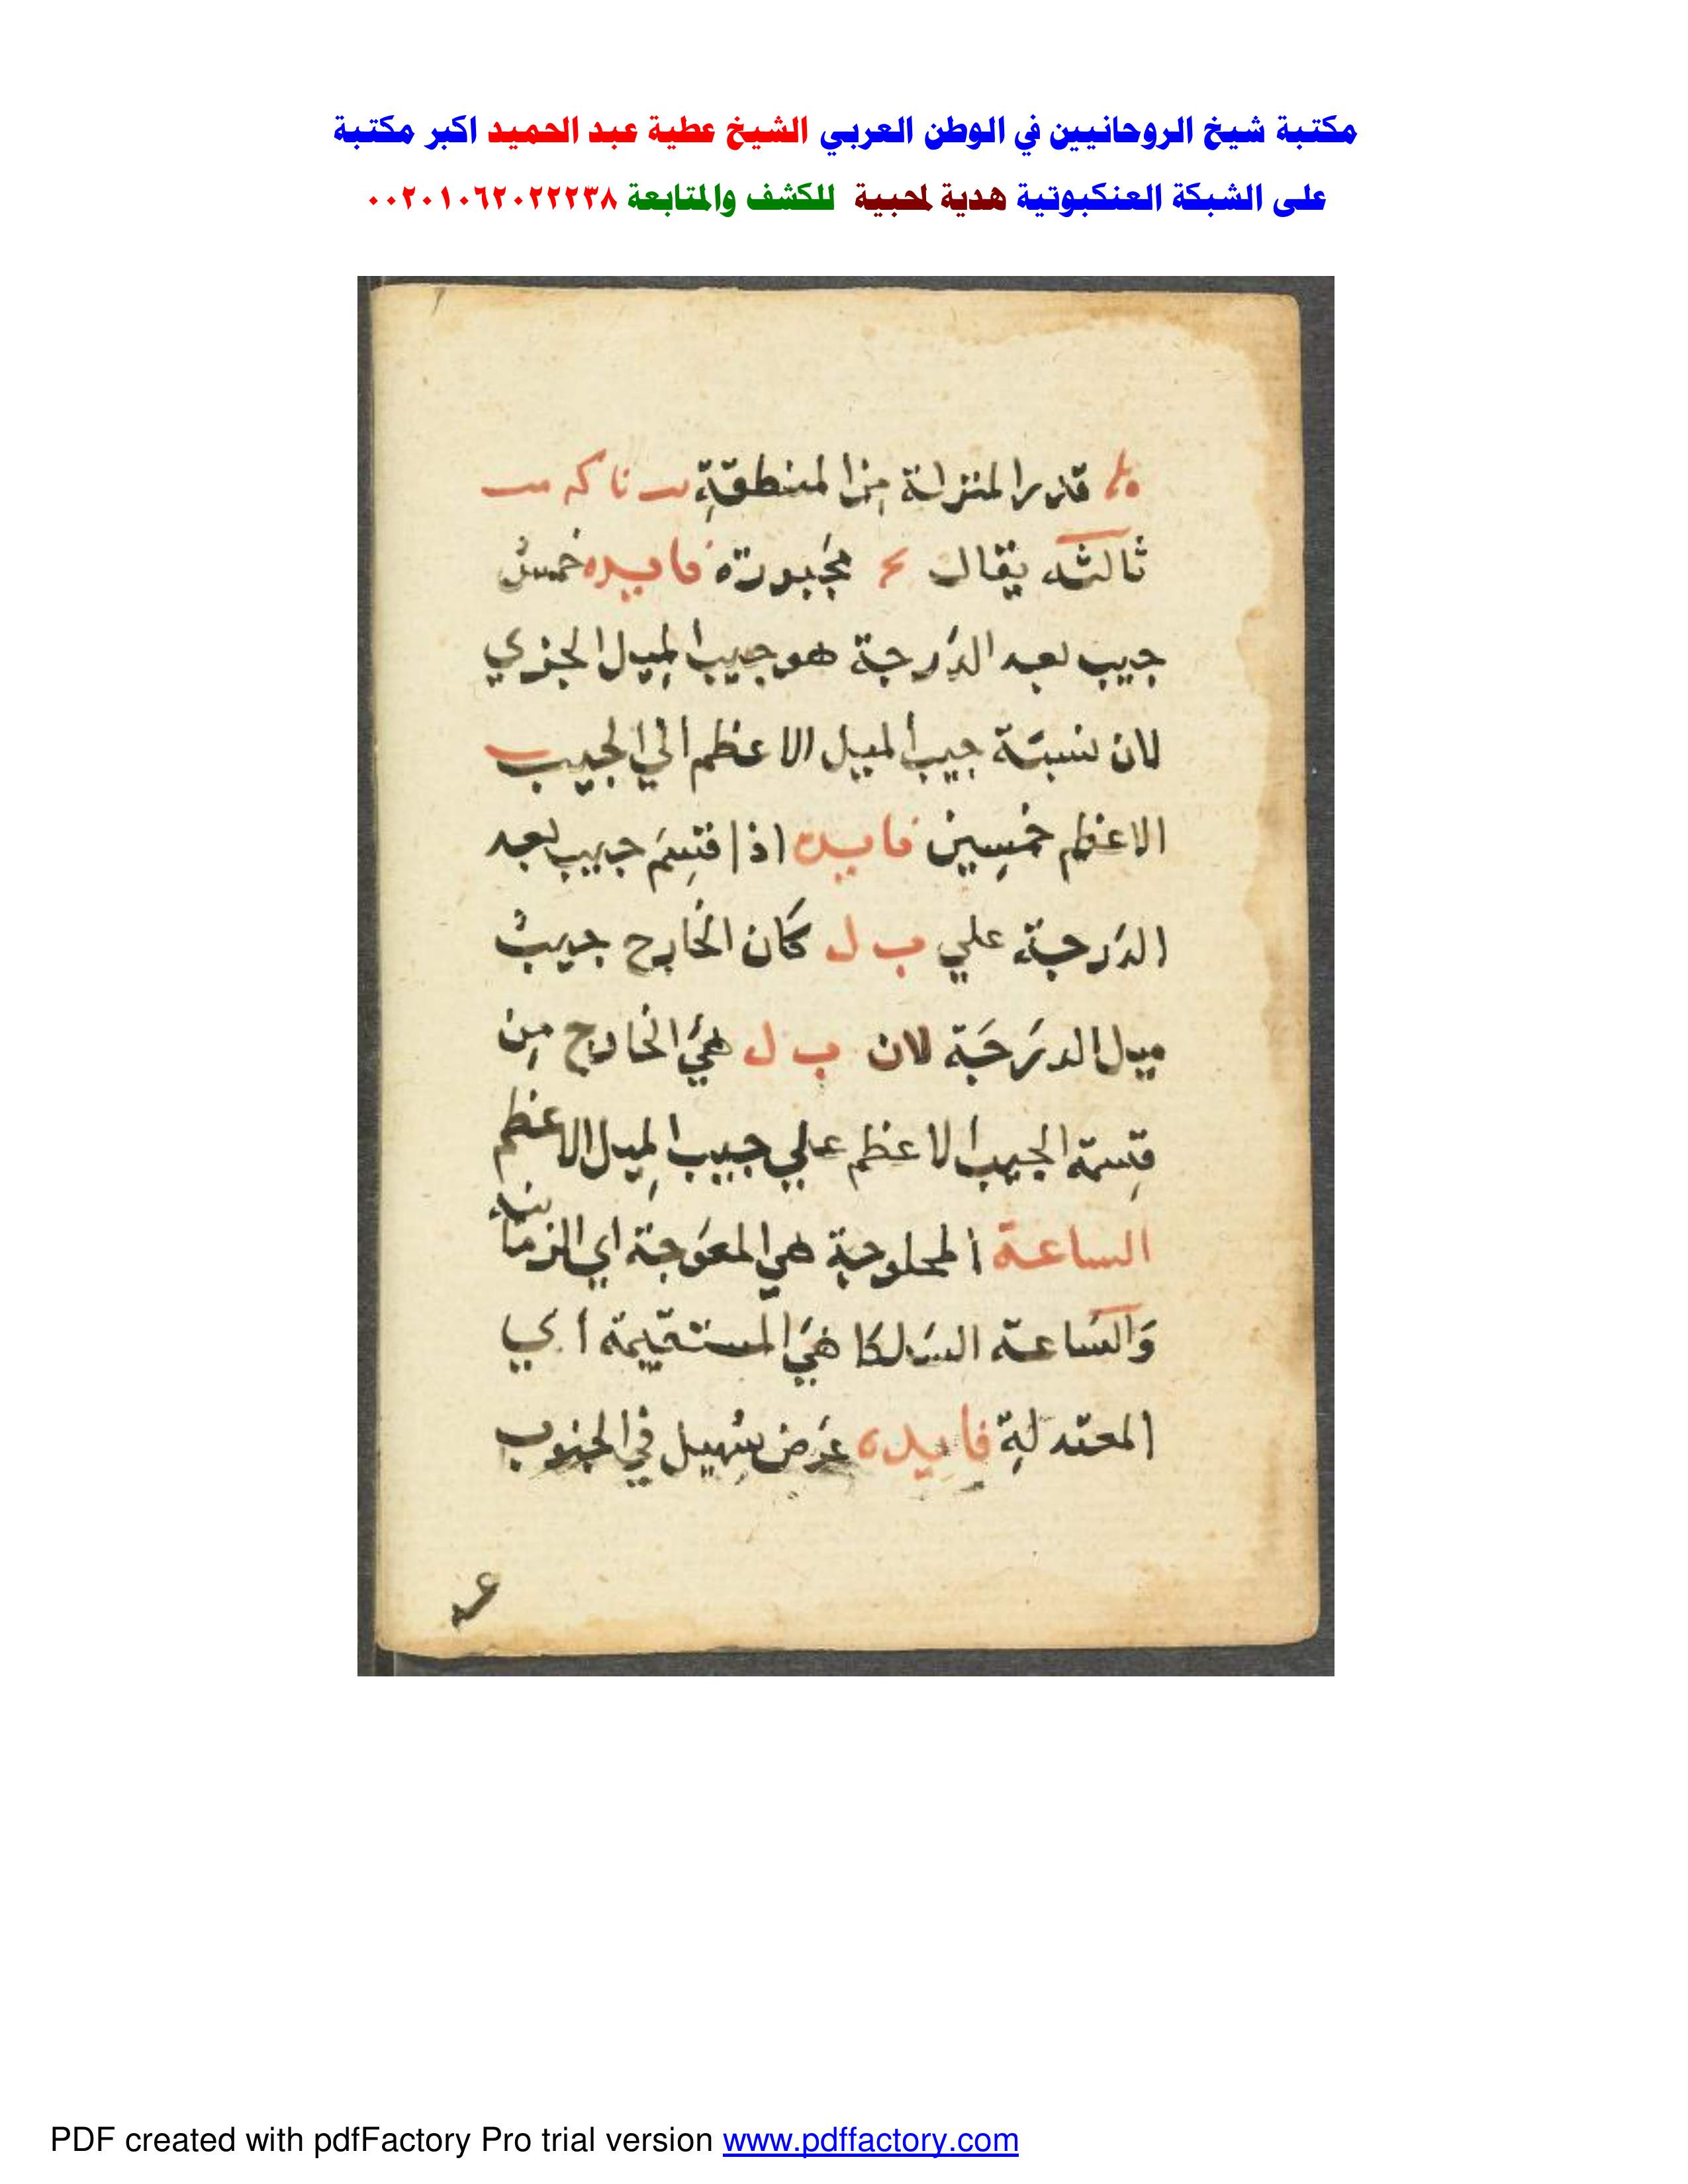 مكتبة شيخ الروحانيين في الوطن العربي الشيخ عطية عبد الحميد اكبر مكتبة
على الشبكة العنكبوتية هدية لمحبية للكشف والمتابعة ٠٠٢٠١٠٦٢٠٢٢٢٣٨
قدر المنزلة من المنطقة
ثالثه يقال مجبورة فايده خمسُ
جيب بعد الدرجة هو جيب الميل الجزي
لان نسبة جيب الميل الاعظم الي الجيب
الاعظم خمسين فايده اذا قسِمَ جيب بعد
الدرجة علي ب ل كان الخارج جيبُ
ميل الدرجة لان ب ل هي الخارج من
قسمة الجيب الاعظم علي جيب الميل الاعظم
الساعة هي المعوجة اي الزمانية
والساعة هي المستقيمة اي
المعتدلة فايده عرض سهيل في الجنوب
PDF created with pdfFactory Pro trial version www.pdffactory.com